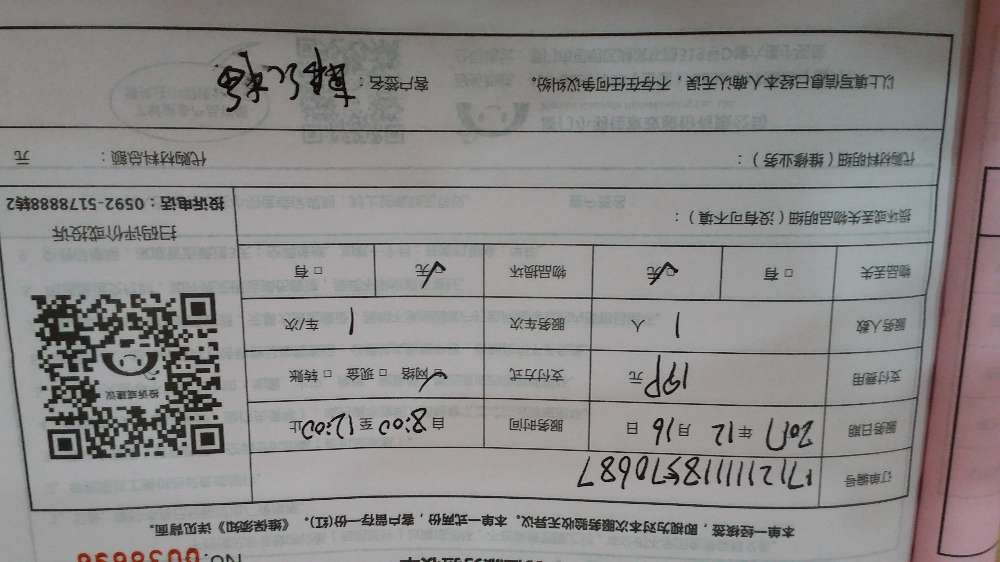 No. 0038636
本单一经续签，即视为对本次服务验收无异议。本单一式两份，客户留存一份(红)。《维保须知》详见背面。
订单编号 171211111857068​7
服务日期 2017 年 12 月 16 日 服务时间 自 8:00 至 12:00 止
支付费用 199 元 支付方式 ☑ 网络 □ 现金 □ 转账
服务人数 1 人 服务车次 1 车/次
物品丢失 □ 有 ☑ 无 物品损坏 ☑ 无 □ 有
投诉或建议
扫码评价或投诉
投诉电话：0592-5178888转2
损坏或丢失物品明细（没有可不填）：
代购材料明细（维修业务）： 代购材料总额： 元
以上填写信息已经本人确认无误，不存在任何争议纠纷。 客户签名：